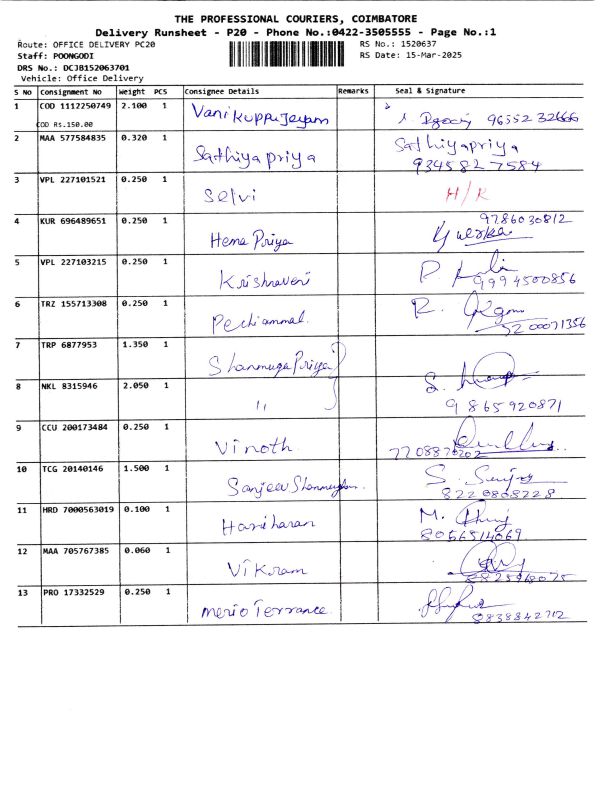 THE PROFESSIONAL COURIERS, COIMBATORE
Delivery Runsheet - P20 - Phone No.:0422-3505555 - Page No.:1
Route: OFFICE DELIVERY PC20 RS No.: 1520637
Staff: POONGODI RS Date: 15-Mar-2025
DRS No.: DCJB152063701
Vehicle: Office Delivery
S No Consignment No Weight PCS Consignee Details Remarks Seal & Signature
1 COD 1112250749 2.100 1 Vani Kuppu Jeyam 96552 32666
COD Rs.150.00
2 MAA 577584835 0.320 1 Sathiya priya Sathiyapriya
9345827584
3 VPL 227101521 0.250 1 Selvi H/R
4 KUR 696489651 0.250 1 Hema Priya 9786030812
5 VPL 227103215 0.250 1 Krishnaveni 9994500856
6 TRZ 155713308 0.250 1 Pechiammal. R.
5200071356
7 TRP 6877953 1.350 1 Shanmuga Priya
8 NKL 8315946 2.050 1 11 S.
9865920871
9 CCU 200173484 0.250 1 Vinoth 7708870202
10 TCG 20140146 1.500 1 Sanjeev Shanmugham S.
8220808228
11 HRD 7000563019 0.100 1 Hariharan M.
8056514069
12 MAA 705767385 0.060 1 Vikram 8825968075
13 PRO 17332529 0.250 1 Merio Terrance 8838842712